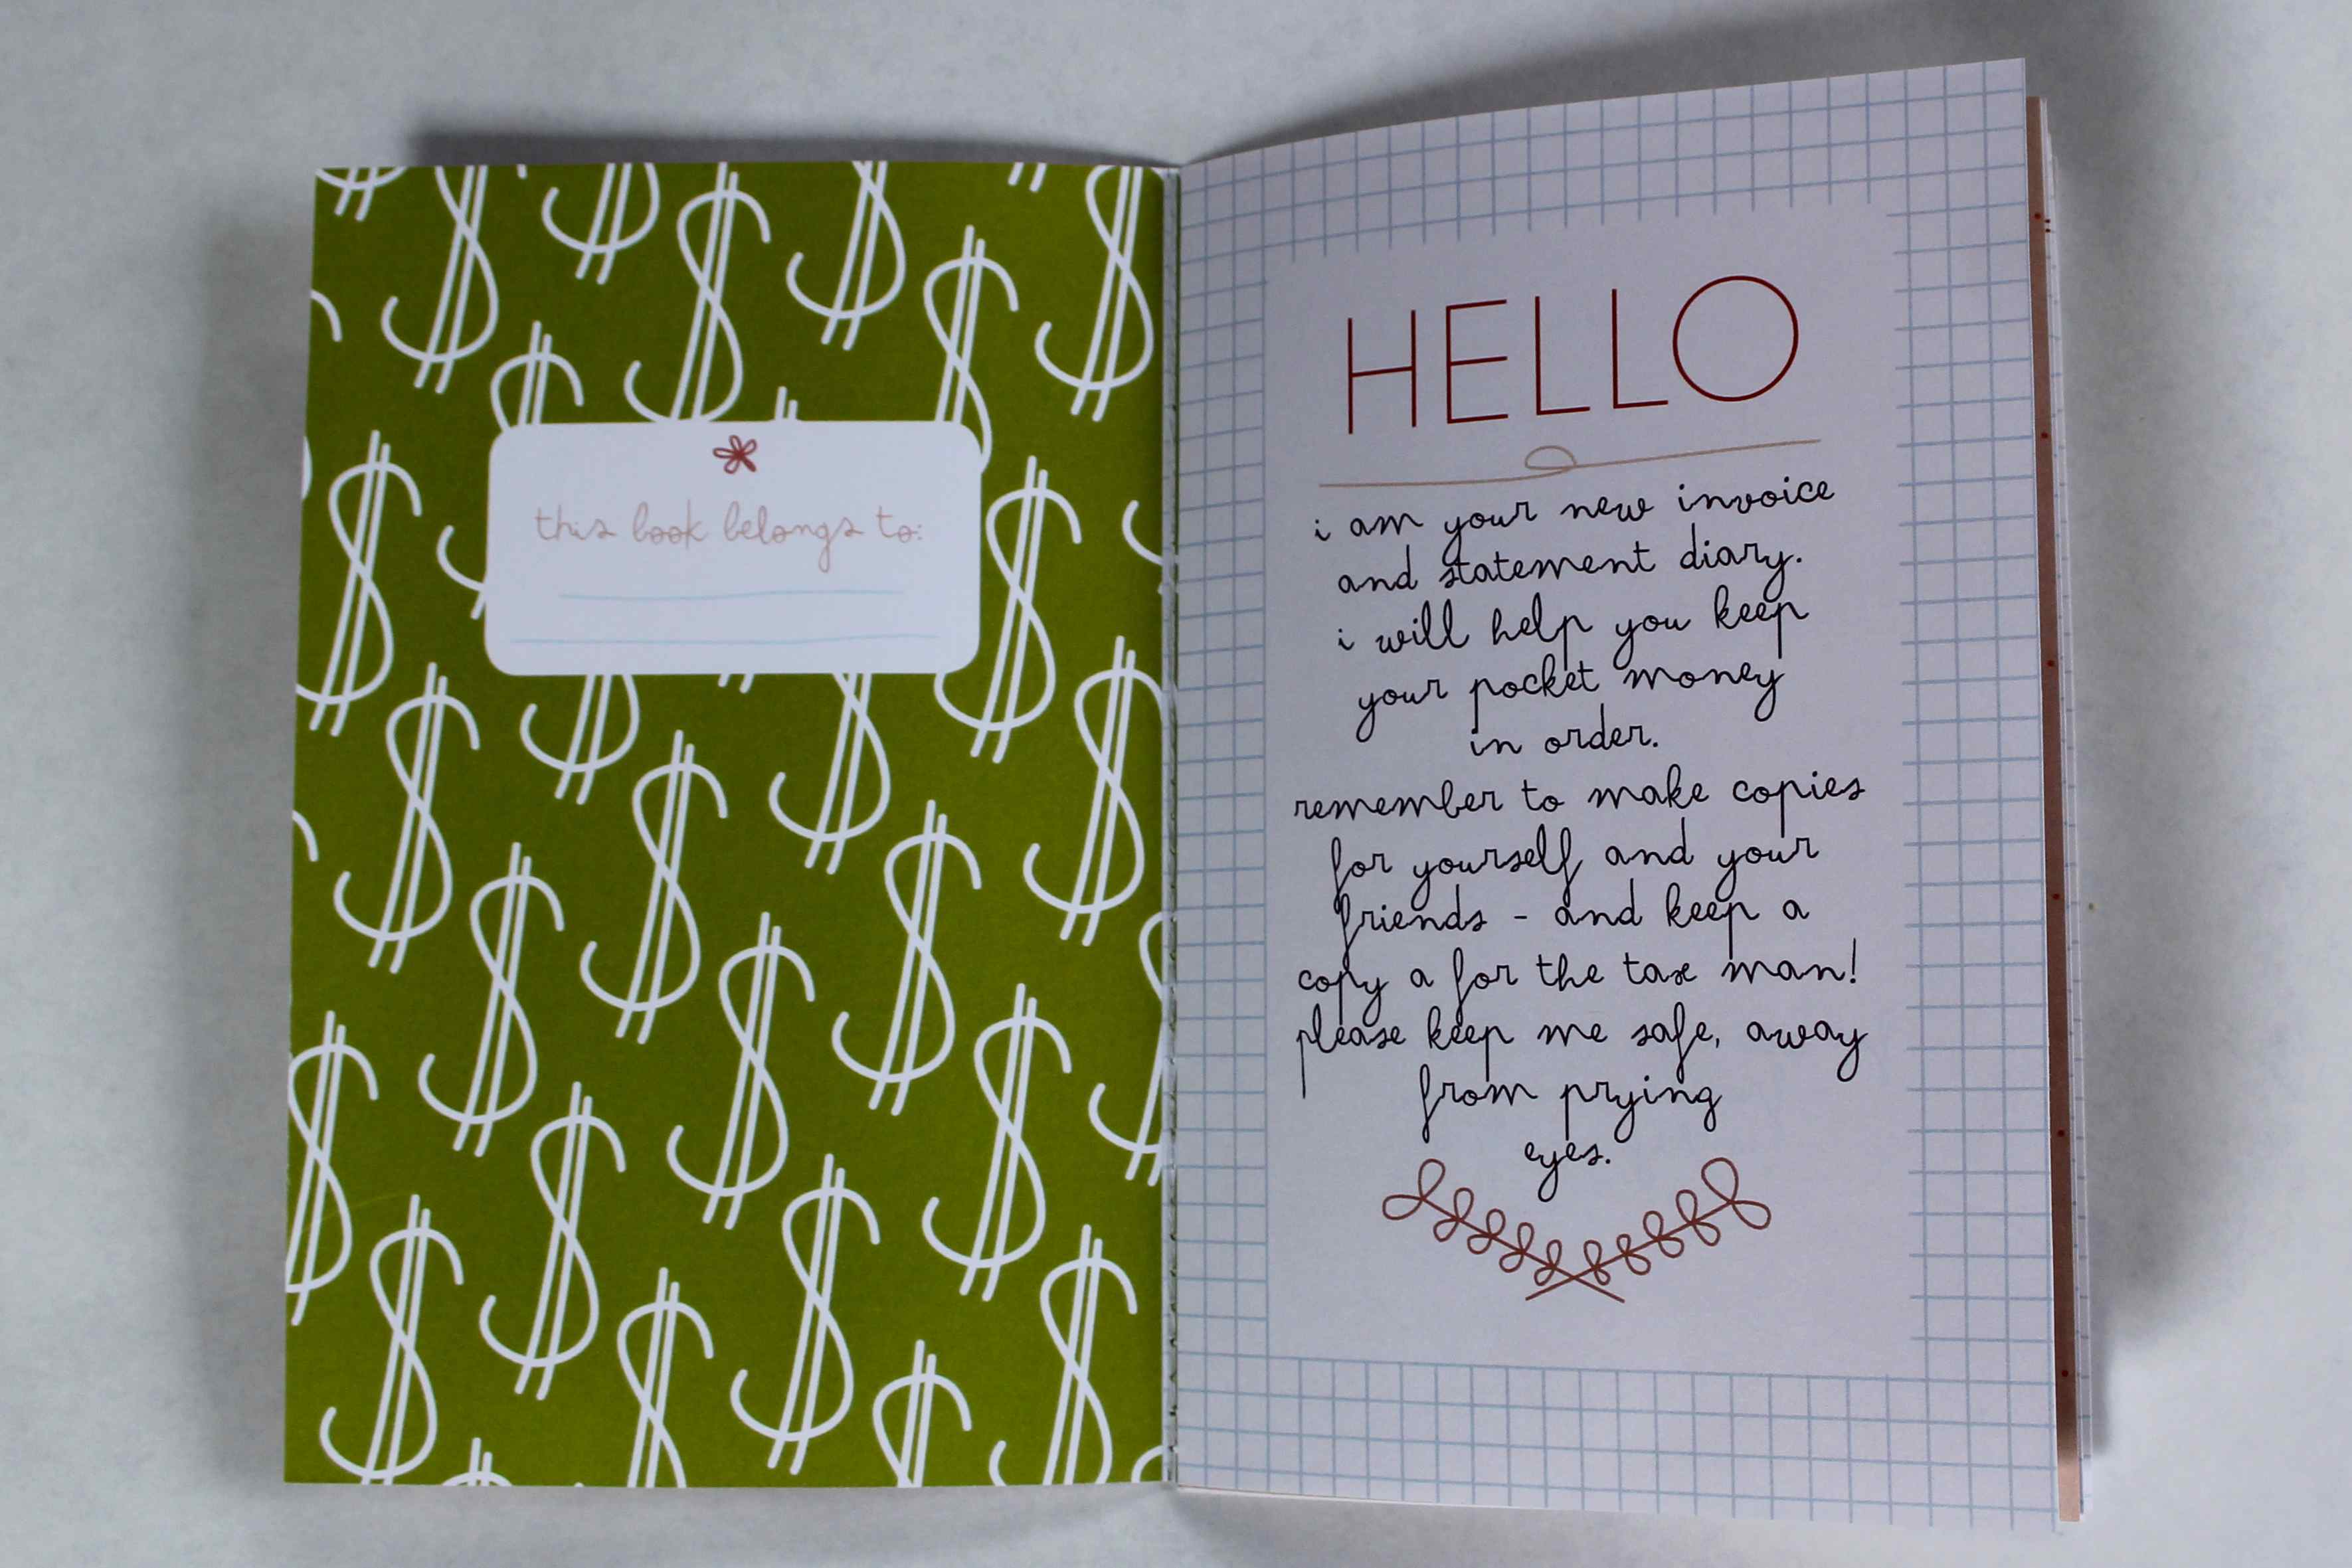 this book belongs to:
HELLO
i am your new invoice
and statement diary.
i will help you keep
your pocket money
in order.
remember to make copies
for yourself and your
friends - and keep a
copy a for the tax man!
please keep me safe, away
from prying
eyes.